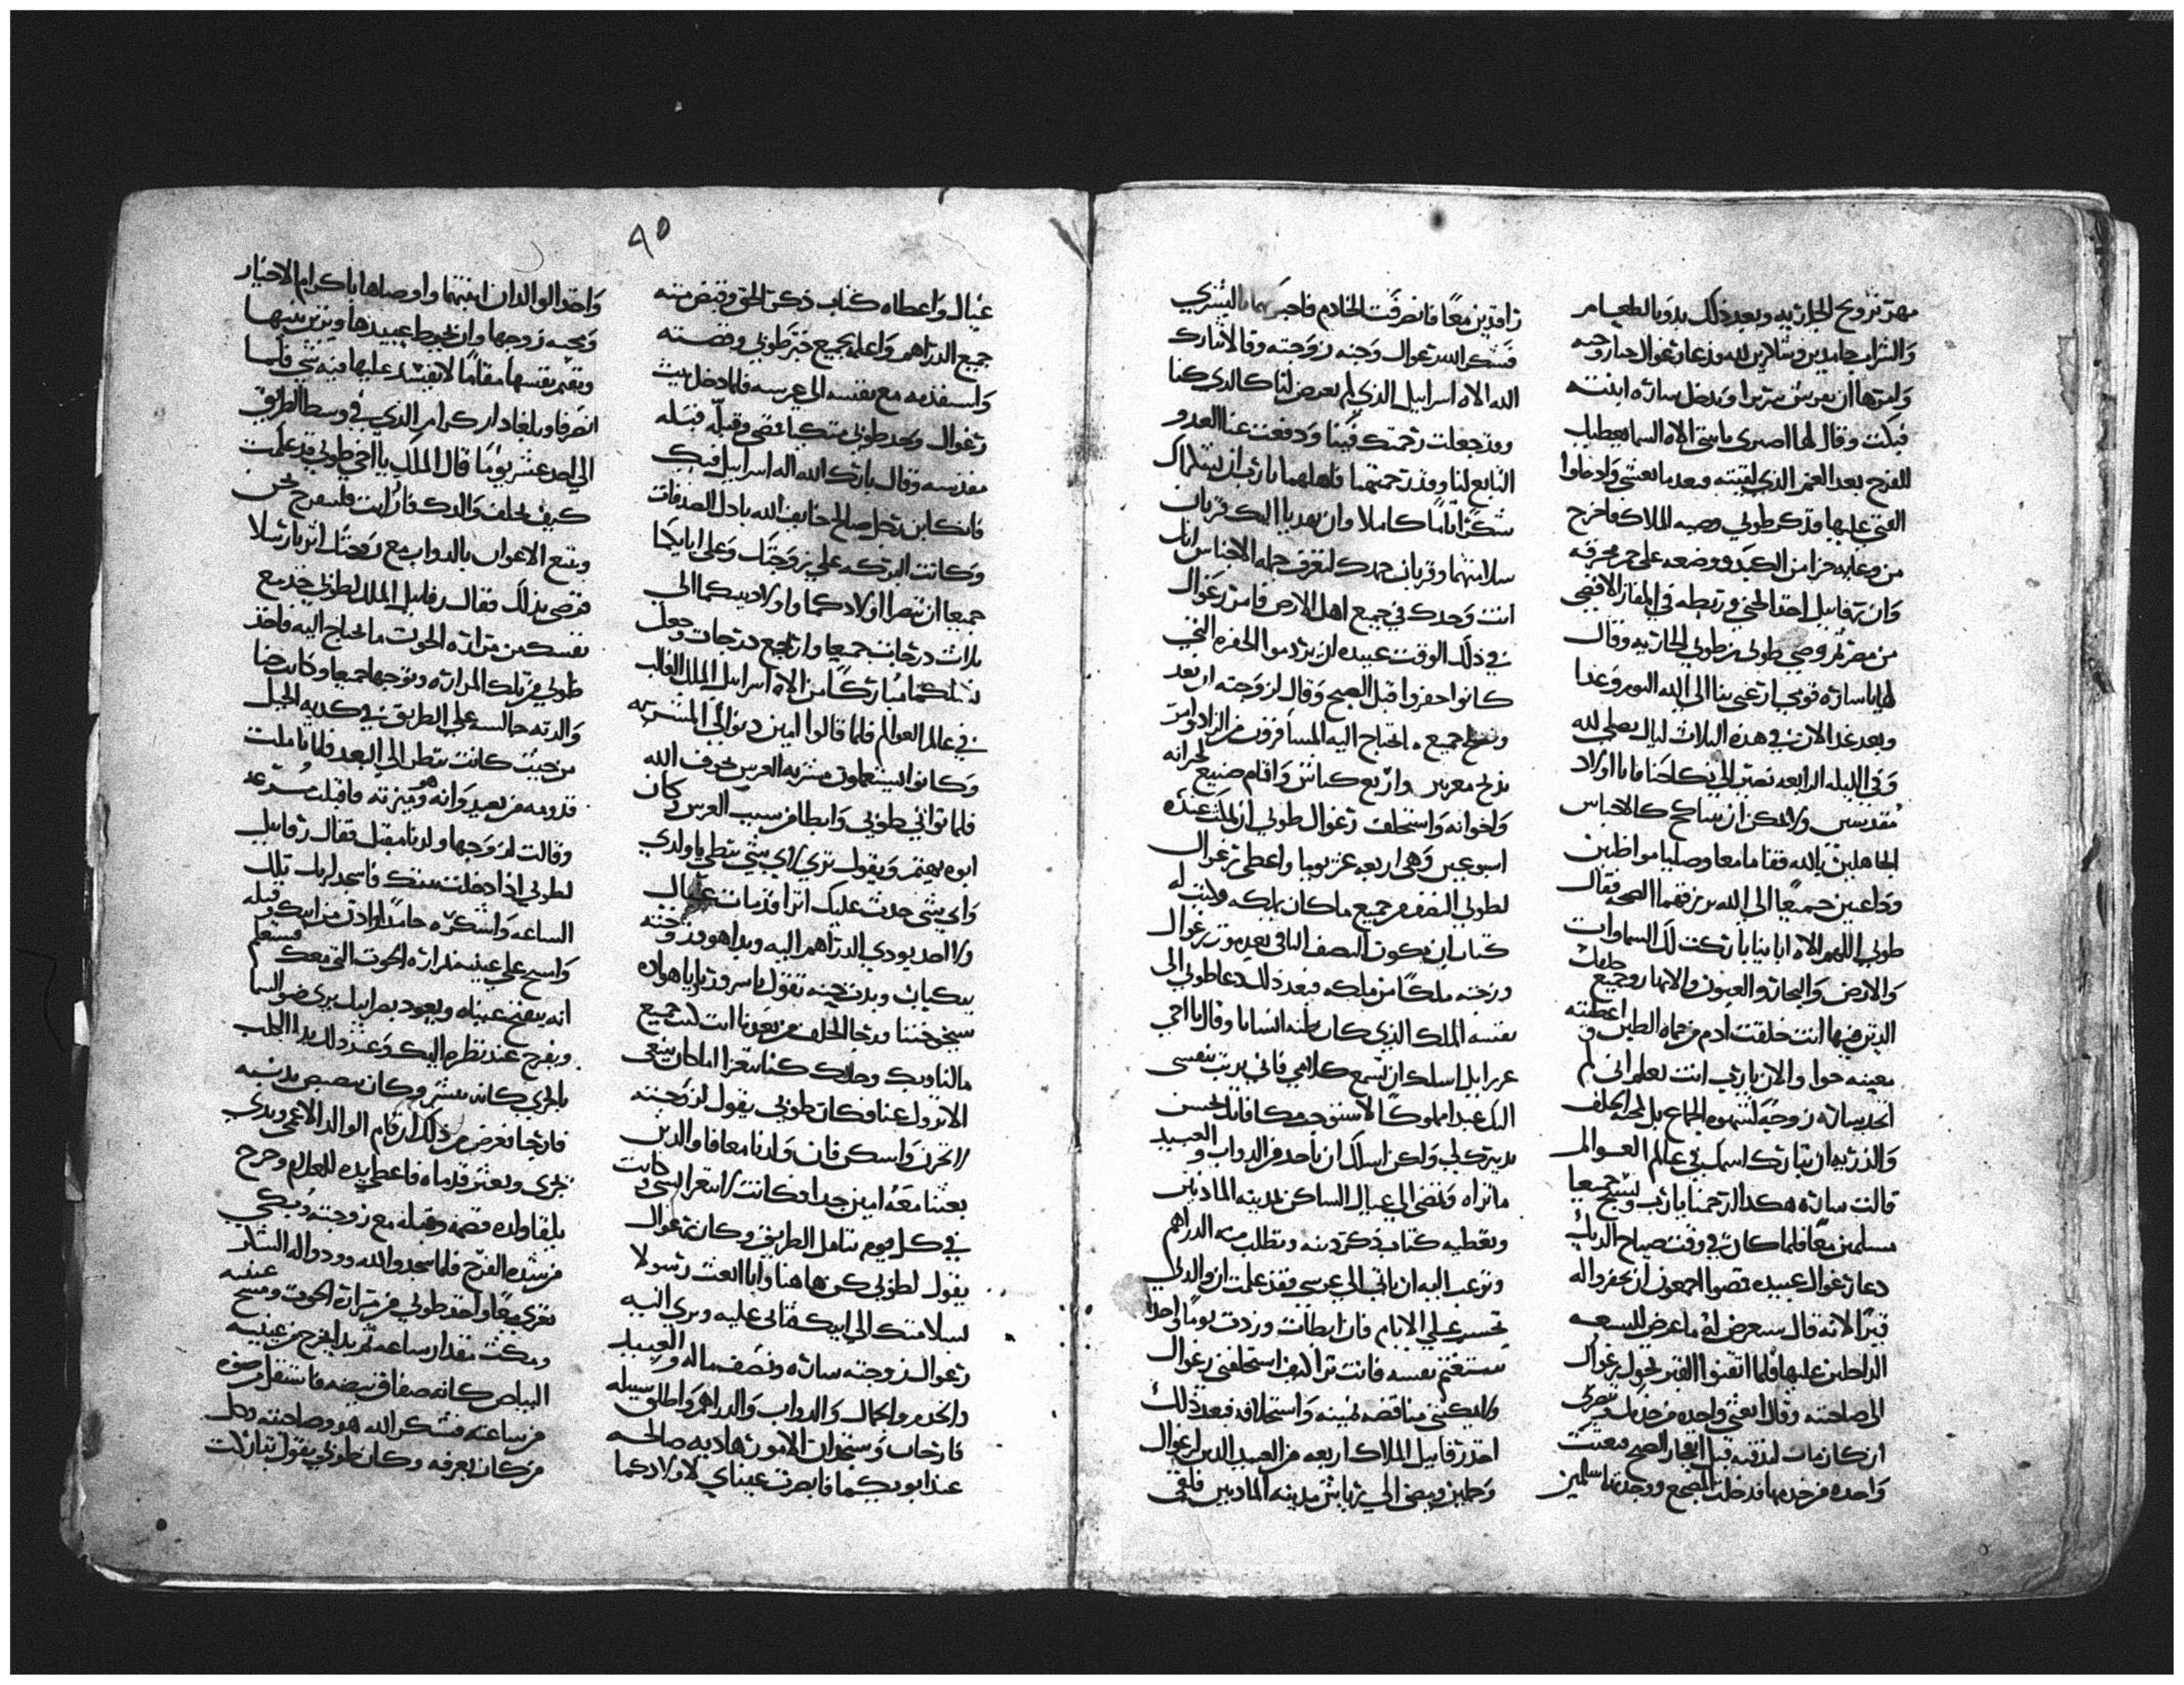 مهر تزويج الجاريه وبعد ذلك بدوا بالطعام
والشراب حامدين وشاكرين لله ودعا رغوال حنا زوجته
وامرها ان تفرش سريرا وتدخل ساره ابنته
فبكت وقال لها اصبري يا بنتي الاه السما يعطيك
الفرح بعد الغم الذي لقيتيه وبعد ما تعشى وادخلوا
الفتى عليها فذكر طوبي وصيه الملاك فاخرج
من وعايه جزا من الكبد ووضعه على جمر محرقه
وان رفاييل اخذ الجني وربطه في المفاز الاقصى
من مصر ثم وصى طوبي بن طوبي الجاريه وقال
لها يا ساره قومي نرغب بنا الى الله اليوم وغدا
وبعد غد الان في هذه الثلاث ليال نصلي لله
وفي الليله الرابعه نصير الى نكاحنا فانا اولاد
مقدسين ولا يمكن ان نتناكح كالاجناس
الجاهلين بالله فقاما معا وصليا مواظبين
وداعين جميعا الى الله يرزقهما الصحه فقال
طوبي اللهم الاه اباينا باركت لك السماوات
والارض والبحار والعيون والانهار وجميع خلقك
الذين فيها انت خلقت ادم من حماه الطين واعطيته
معينه حوا والان يا رب انت تعلم اني لم
اتخذ ساره زوجه لشهوه الجماع بل لمحبه الخلف
والذريه ان تبارك اسمك في عالم العوالم
قالت ساره هكذا ارحمنا يا رب ونشيخ جميعا
مسلمين معا فلما كان في وقت صياح الديك
دعا رغوال عبيده فمضوا اجمعون ان يحفروا له
قبرا لانه قال سيعرض له ما عرض للسبعه
الداخلين عليها فلما اتقنوا القبر تحول رغوال
الى صاحبته وقال ابعثي واحده من خدمك فتبصري
ان كان مات لندفنه قبل انفجار الصبح فبعثت
واحده من خدمها فدخلت المضجع ووجدتهما سالمين
راقدين معا فانصرفت الخادم فاخبرتهما بالبشري
فشكر الله رغوال وحنه زوجته وقالا نبارك
الله الاه اسراييل الذي لم يعرض لنا كالذي كنا
وقد جعلت رحمتك فينا ودفعت عنا العدو
التابع لنا وقد رحمتهما فاهلهما يا رب ان يستكملاك
شكرا تاما كاملا وان يهديا اليك قربان
سلامتهما وقربان حمدك لتعرف جمله الاجناس انك
انت وحدك في جميع اهل الارض فامر رغوال
في ذلك الوقت عبيده ان يردموا الحفره التي
كانوا حفروا قبل الصبح وقال لزوجته ان تعد
وتصلح جميع ما يحتاج اليه المسافرون من الزاد وامر
بذبح بقرتين واربع كباش واقام صنيع لجيرانه
واخوانه واستحلف رغوال طوبي ان يمكث عنده
اسبوعين وهي اربعه عشر يوما واعطى رغوال
لطوبي النصف من جميع ما كان يملكه وكتب له
كتاب ان يكون النصف الباقي بعد موت رغوال
وزوجته ملكا من ملكه فبعد ذلك دعا طوبي الى
نفسه الملك الذي كان يظنه انسانا وقال يا اخي
عزرايل اسلك ان تسمع كلامي فاني لو بت بنفسي
اليك عبدا مملوكا لا استوجب مكافاتك لحسن
تدبيرك لي ولكن اسلك ان تاخذ من الدواب والعبيد
ما تراه وتمضي الى غبيال الساكن لمدينه الماديين
وتعطيه كتاب ذكر دينه وتطلب منه الدراهم
وترغب اليه ان ياتي الى عرسي فقد علمت ان والدي
يحسب علي الايام فان ابطات وزدت يوما واحدا
ستغتم نفسه فانت ترا كيف استحلفني رغوال
ولا يمكنني مناقضه يمينه واستحلافه فبعد ذلك
اخذ رفاييل الملاك اربعه من العبيد الذين لرغوال
وجملين ومضى الى راياش مدينه الماديين فلقى
٩٥
غبيال واعطاه كتاب ذكر الحق وقبض منه
جميع الدراهم واعلمه بجميع خبر طوبي وقصته
واستقدمه مع نفسه الى عرسه فلما دخل بيت
رغوال وجد طوبي متكيا فمضى وقبله فقبله
مقدسه وقال بارك الله اله اسراييل فيك
فانك ابن رجل صالح خايف الله باذل الصدقات
وكانت البركه على زوجتك وعلى ابايكما
جميعا ان تنصرا اولادكما واولاد بنيكما الى
ثلاث درجات جميعا وارتفع درجات وجعل
نسلكما مباركا من الاه اسراييل الملك الغالب
في عالم العوالم فلما قالوا امين دنوا الى المشربه
وكانوا يستعملون مشربه العرس بخوف الله
فلما تواني طوبي وابطا من سبب العرس وكان
ابوه يهتم ويقول ترى لاي شي بطي يا ولدي
واي شي حدث عليك اترا قد مات غبيال
ولا احد يودي الدراهم اليه وبدا هو وزوجته
يبكيان وبدت حنه تقول يا سرورنا يا هواره
شيخوختنا ورجا الخلف من بعدنا انت كنت جميع
مالنا وبك وحدك كنا نتعزا اما كان ينبغي
الا تزول عنا فكان طوبي يقول لزوجته
لا تحزني واسكتي فان ولدنا معافا والذي
بعثنا معه امين جدا فكانت لا تتعزا لشي وكانت
في كل يوم تتامل الطريق وكان رغوال
يقول لطوبي كن هاهنا وانا ابعث رسولا
بسلامتك الى ابيك فابى عليه وبرى اليه
رغوال زوجته ساره ونصف ماله والعبيد
والخدم والجمال والدواب والدراهم واطلق سبيله
فارحان وستجدان الامور هاديه صالحه
عند ابويكما فابصرت عيناي لاولادكما
واخذا الوالدان ابنتهما واوصياها باكرام الاحبار
ومحبه زوجها وان تحيط عبيدها وتزين بيتها
وتقيم نفسها مقاما لا يفسد عليها فيه شي فلما
انصرفا وبلغا دار كرامر الذي في وسط الطريق
الى احد عشر يوما قال الملك يا اخي طوبي قد علمت
كيف تخلف والدك فان رايت فلنسرح نحن
ويتبع الاعوان بالدواب مع زوجتك اثرنا رسلا
فرضي بذلك فقال رفاييل الملك لطوبي خذ مع
نفسك من مراره الحوت ما تحتاج اليه فاخذ
طوبي من تلك المراره وتوجها جميعا وكانت حنا
والدته جالسه على الطريق في كديه الجبل
من حيث كانت تنظر الى البعد فلما تاملت
قدومه من بعيد وانه هو ميزته فاقبلت مسرعه
وقالت لزوجها ولدنا مقبل فقال رفاييل
لطوبي اذا دخلت بيتك فاسجد لربك تلك
الساعه واشكره حامدا وادن من ابيك قبله
وامسح على عينيه مراره الحوت التي معك فستعلم
انه يفتح عيناه ويعود بصر ابيك يرى ضو السما
ويفرح عند نظره اليك وعند ذلك بدا الكلب
بالجري كانه مبشر وكان يبصبص بذنبه
فارحا بغرض من ذلك ان قام الوالد الاعمى وبدى
يجري ويعثر قدماه فاعطى يده للغلام وخرج
يلقا ولده فضمه وقبله مع زوجته وبكى
من شده الفرح فلما سجدوا لله وردوا له الشكر
بعزي معا واخذ طوبي من مراره الحوت ومسح عينيه
ومكث مقدار ساعه ثم بدا يخرج من عينيه
البياض كانه صفاق بيضه فانتقل من صوره
من ساعته فشكر الله هو وصاحبته وكل
من كان يعرفه وكان طوبي يقول تباركت